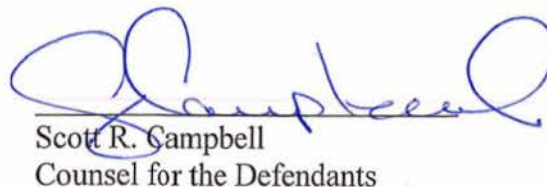 SCampbell
Scott R. Campbell
Counsel for the Defendants